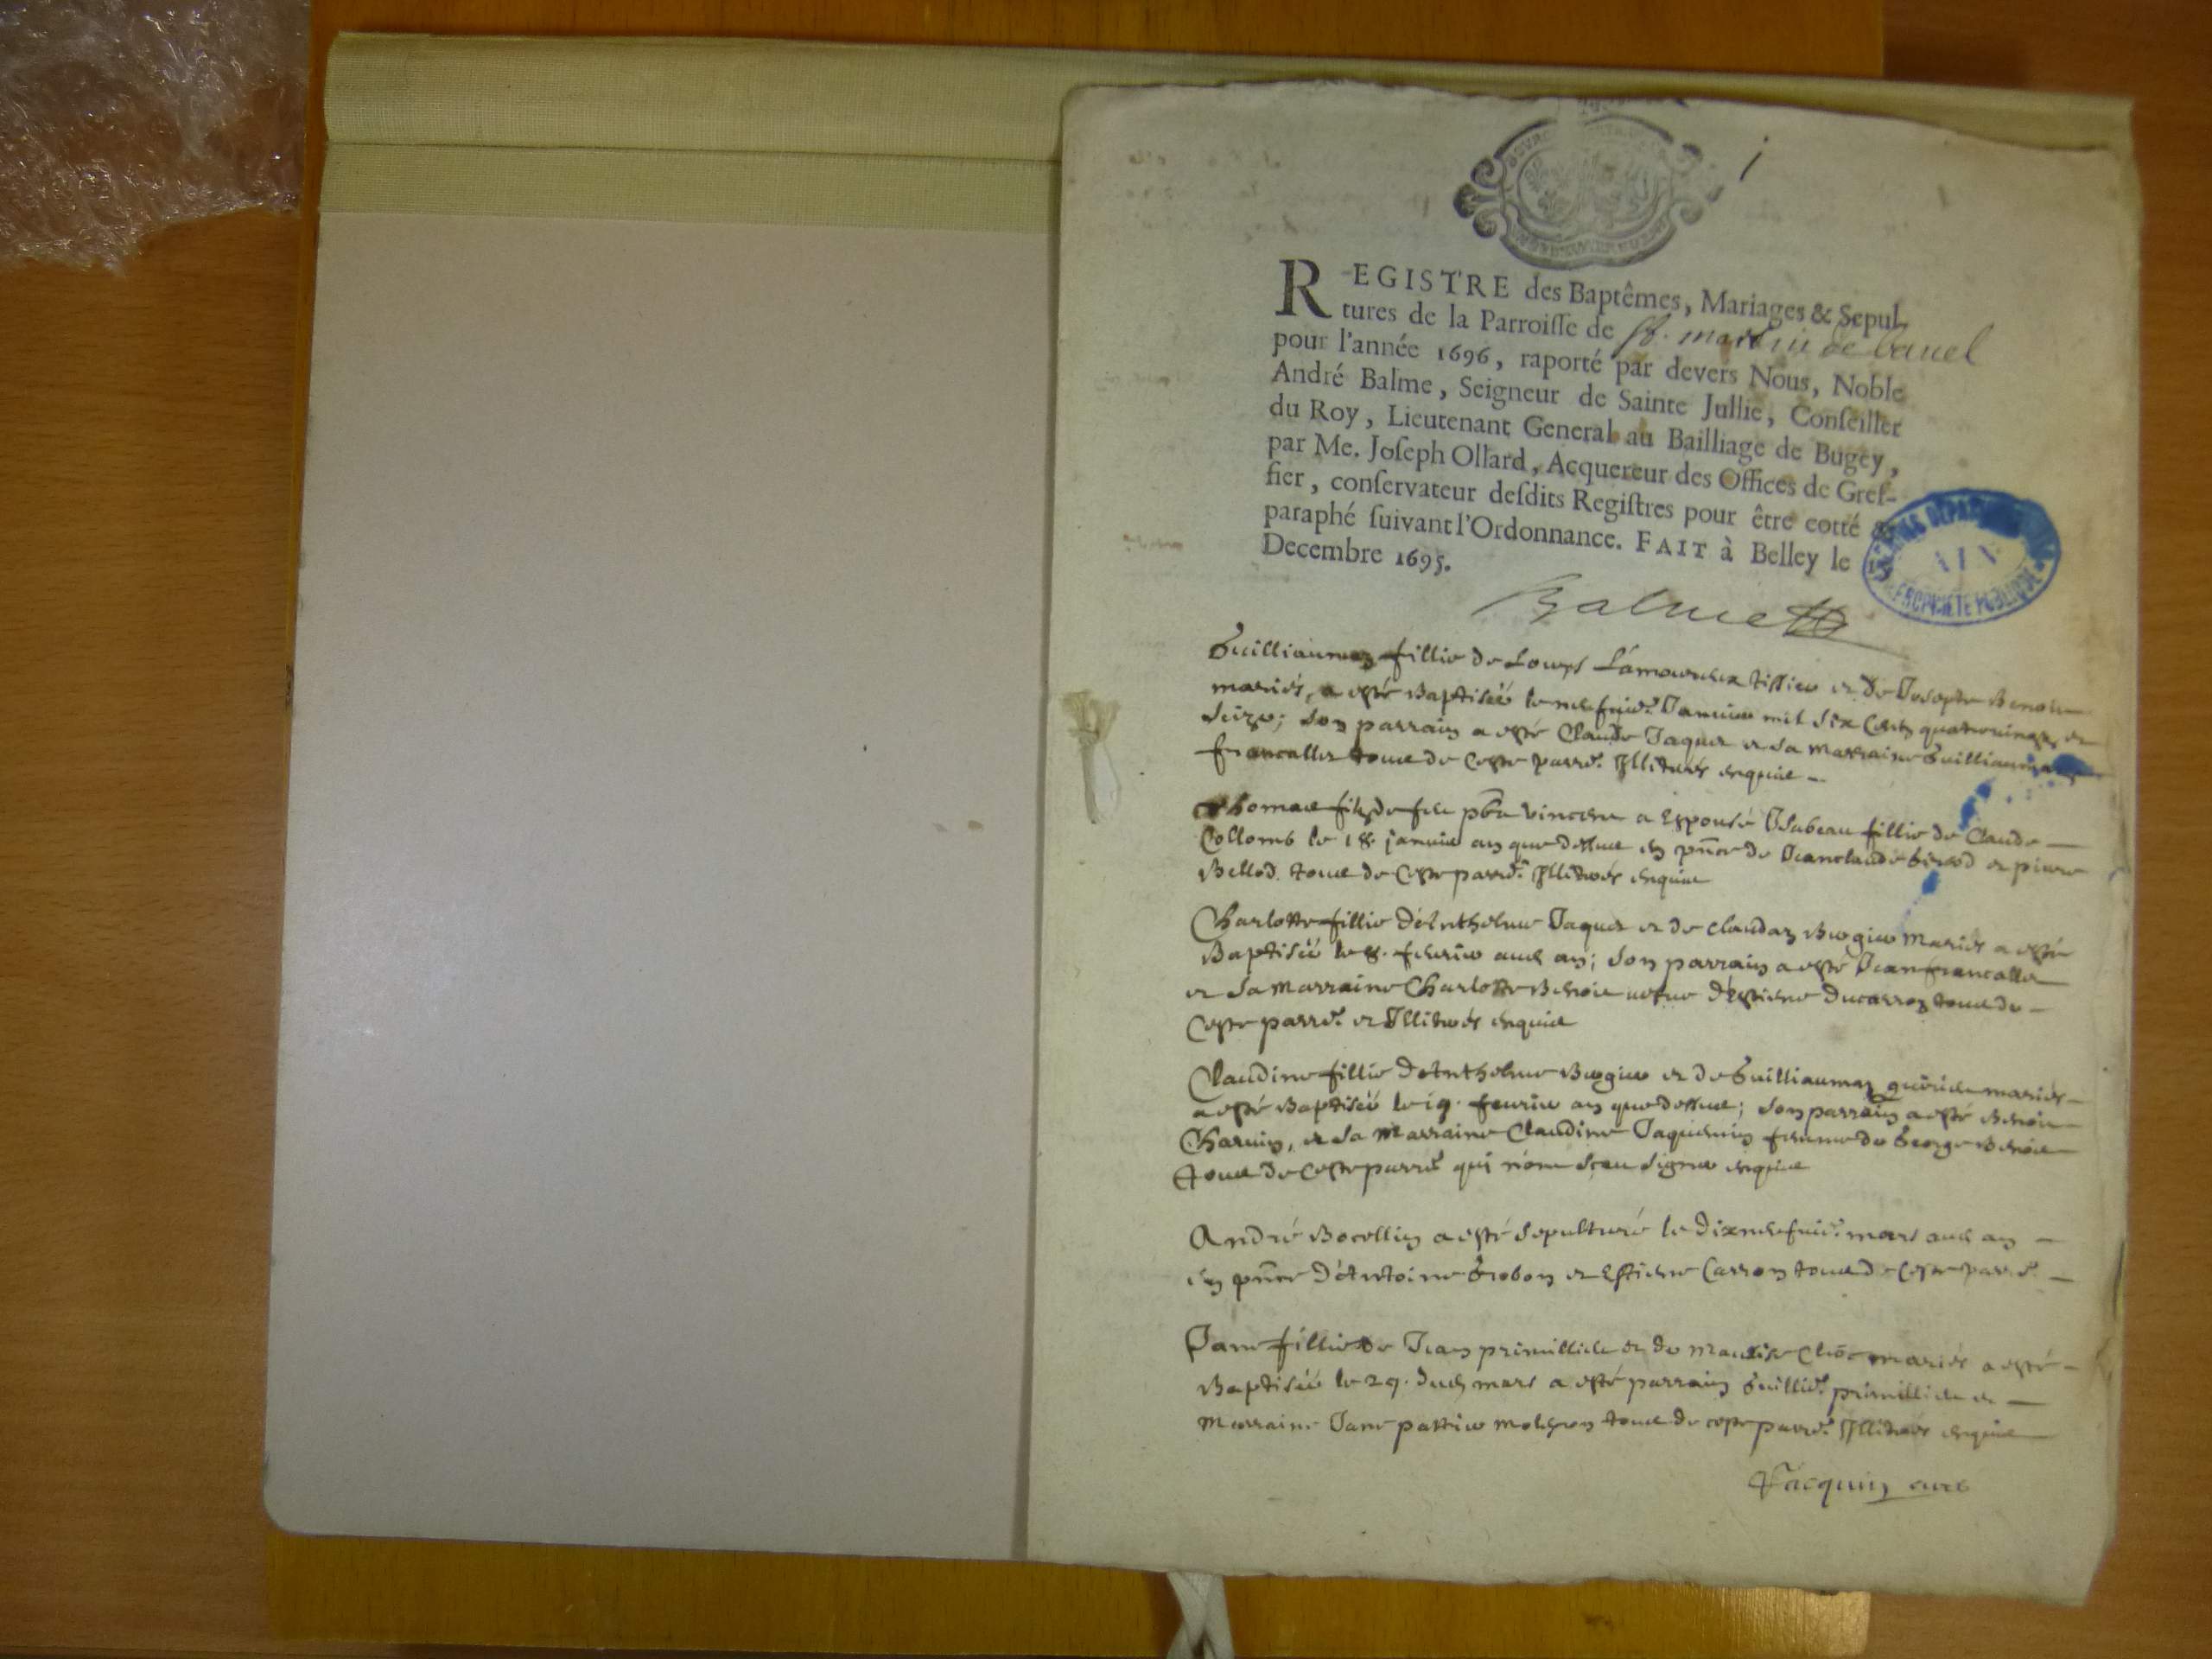 i
REGISTRE des Baptêmes, Mariages & Sepul
tures de la Parroisse de St. martin de bauel
pour l'année 1696, raporté par devers Nous, Noble
André Balme, Seigneur de Sainte Jullie, Conseiller
du Roy, Lieutenant General au Bailliage de Bugey,
par Me. Joseph Ollard, Acquereur des Offices de Gref-
fier, conservateur desdits Registres pour être cotté &
paraphé suivant l'Ordonnance. FAIT à Belley le
Decembre 1695.
PROPRIETE PUBLIQUE
Balme
fillie de Louys Lamoureux tissier et de Josepte Benoit
mariés, a esté Baptiséé le Januier mil six Cents quatreuingts et
seize; son parrain a esté Claude Jaquet et sa marraine
francallet tous de Ceste parre. Illiterés enquis
Thomas fils de feu vincent a Espousé Isabeau fillie de Claude
Collomb le 18. januier an que dessus en pnce de Jeanclaude et pierre
Bellod tous de Ceste parre. Illiterés enquis
Charlotte fillie d'Anthelme Jaquet et de claudaz Bugier mariés a esté
Baptiséé le 8. feurier aud an; son parrain a esté Jean francallet
et sa marraine Charlotte Benoit uefue d'Estiene Ducarroz tous de
Ceste parre. et Illiterés enquis
Claudine fillie d'Anthelme Bugier et de Guilliaumaz mariés
a esté Baptiséé le 19. feurier an que dessus; son parrain a esté Benoit
Charuin, et sa Marraine Claudine Jaquemin femme de George Benoit
tous de Ceste parre qui n'ont sçeu signer enquis
André Bocellin a esté sepulturé le Dixneufuie. mars aud an
en pnce d'Antoine et Estiene Carron tous de Ceste parre.
Jane fillie de Jean primillieu et de mariés a esté
Baptiséé le 29. dud mars a esté parrain Guillie. primillieu et
marraine Jane tous de ceste parre. Illiterés enquis
Jacquin curé